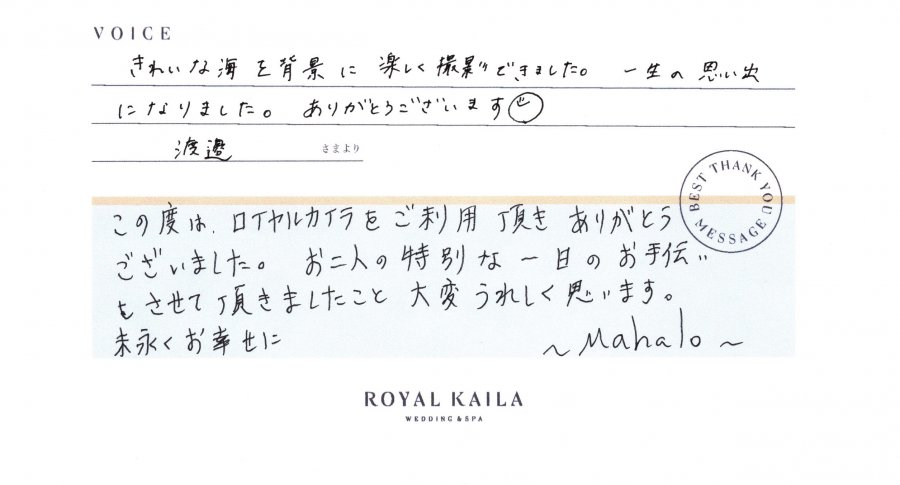 VOICE
きれいな海を背景に 楽しく撮影できました。 一生の思い出
になりました。 ありがとうございます
渡邉 さまより
BEST THANK YOU MESSAGE
この度は、ロイヤルカイラをご利用頂きありがとう
ございました。 お二人の特別な一日のお手伝い
をさせて頂きましたこと 大変うれしく思います。
末永くお幸せに ~Mahalo~
ROYAL KAILA
WEDDING & SPA